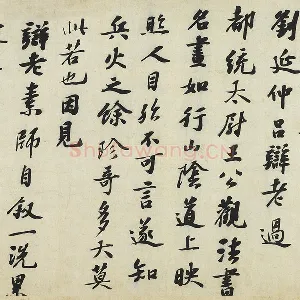 劉延仲呂辯老過
都統太尉王公觀法書
名畫如行山陰道上映
照人目殆不可言遂知
兵火之餘珍奇多大莫
此若也因見
辯老素師自叙一洗眾